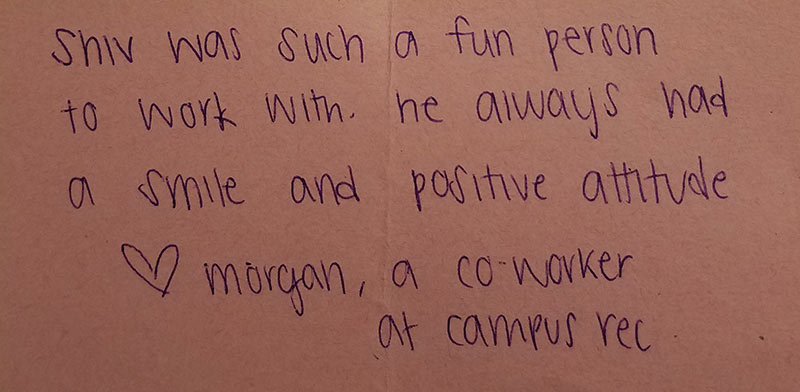 Shiv was such a fun person
to work with. he always had
a smile and positive attitude
♡ morgan, a co-worker
at campus rec